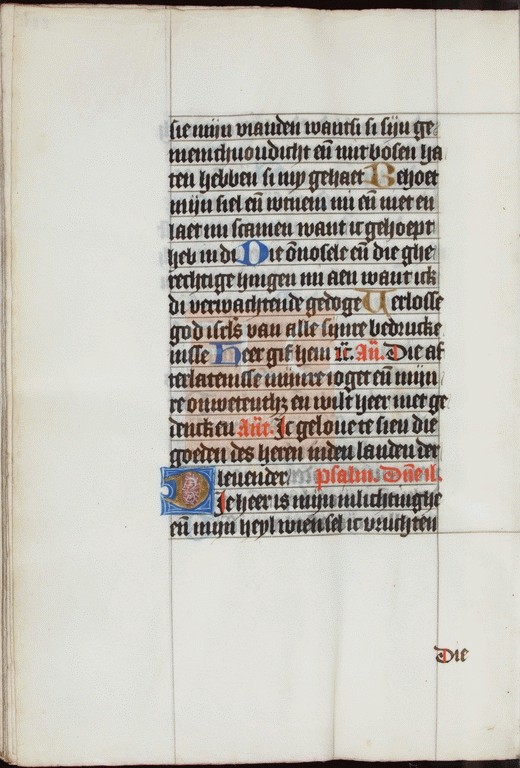 sie mijn vianden wantsi si sijn ge
menichvoudicht eñ mit bosen ha
ten hebben si my gehaet Behoet
mijn siel eñ wtneem mi eñ niet en
laet mi scamen want ic gehoept
heb in di Die õnosele eñ die ghe
rechtige hingen mi aen want ick
di verwachtende gedoge Verlosse
god israel van alle sijnre bedrucke
nisse Heer gif hem Añ. Die af
terlatenisse mijnre ioget eñ mijn
re onwetenth3 en wilt heer niet ge
dencken Añt. Ic gelove te sien die
goeden des heren inden landen der
levender Psalm. Dñe il.
Die heer is mijn inlichtinghe
eñ mijn heyl wien sel ic vruchten
Die